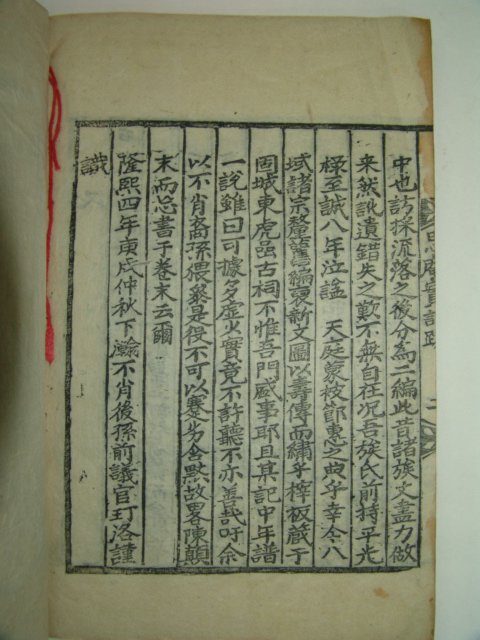 中也訪採流落之後分為二編此昔諸族丈盡力做
来然訛遺錯失之歎不無自在况吾族氏前持平光
稑至誠八年泣謚　天庭蒙被節惠之典乎幸今八
域諸宗釐舊編更新文圖以壽傳而繡乎梓板藏于
固城東虎邑古祠不惟吾門盛事耶且某記中年譜
一說雖曰可據多虛少實竟不許聽不亦善哉吁余
以不肖裔孫猥參是役不可以蹇劣含默故畧陳顛
末而忘書于卷末云爾
隆熙四年庚戌仲秋下瀚不肖後孫前議官玎洛謹
識
忠實記跋